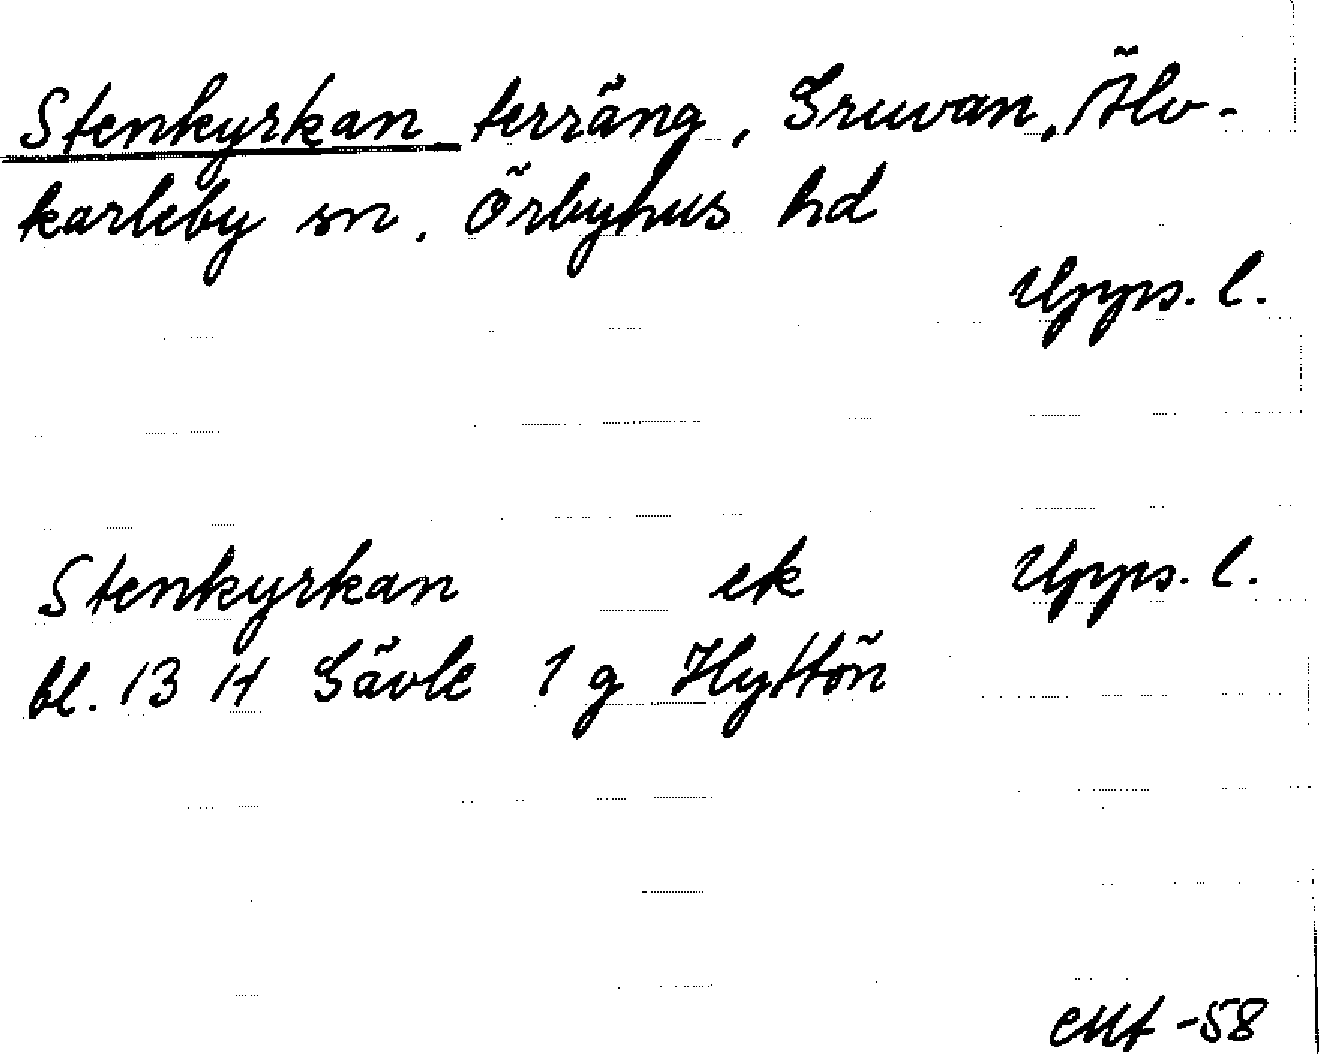 Stenkyrkan terräng, Gruvan, Älv-
karleby sn, Örbyhus hd
Upps. l.
Stenkyrkan ek Upps. l.
bl. 13 H Gävle 1 g Hyttön
-58